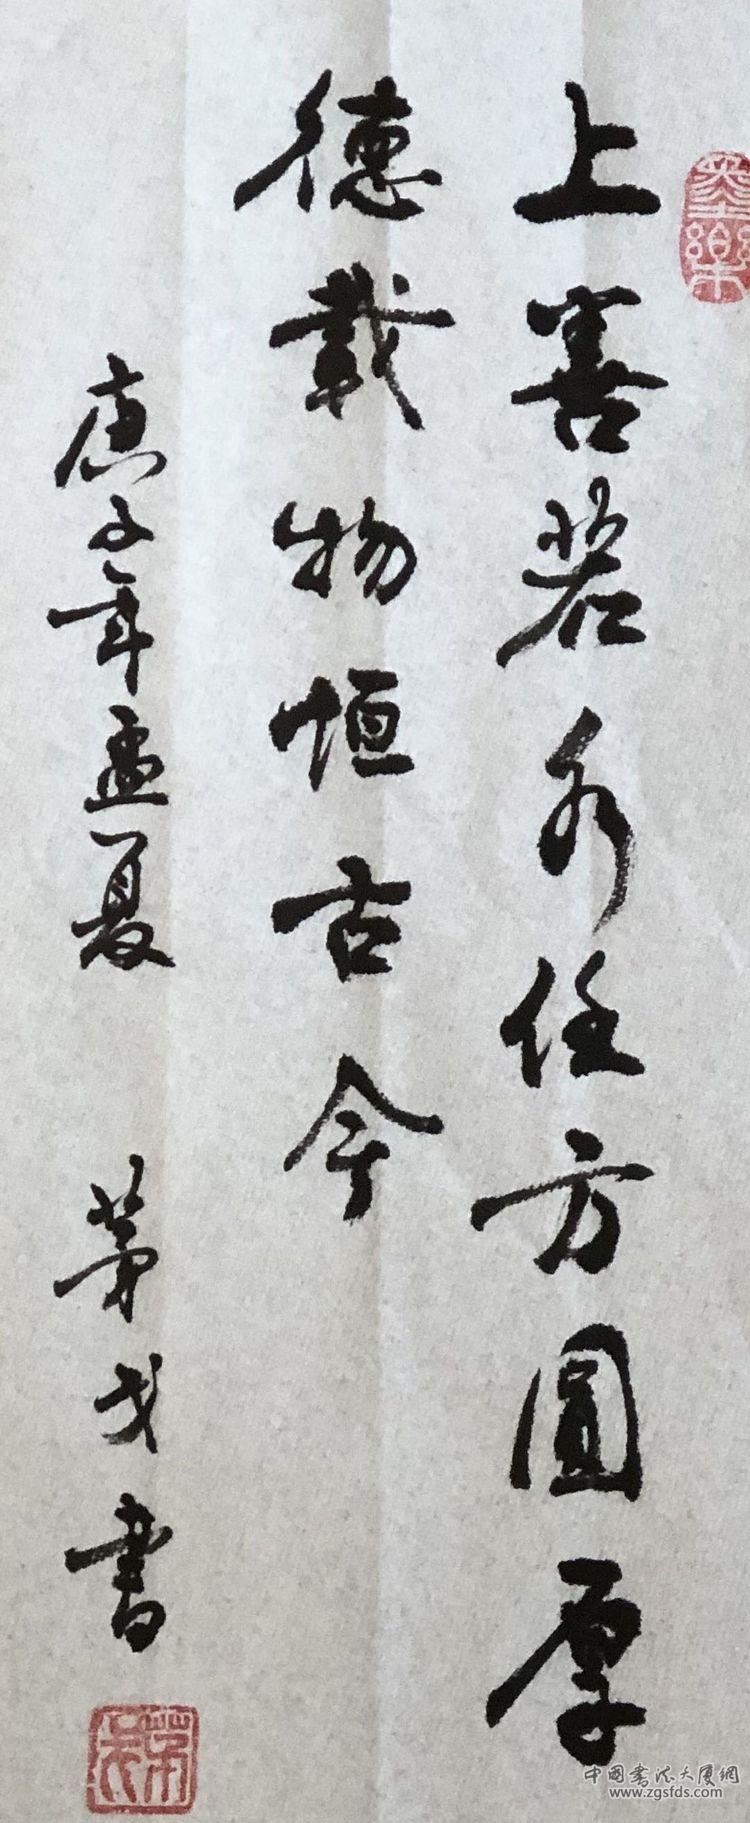 上善若水任方圓厚
德載物恒古今
庚子年孟夏 茅戈書
墨樂
中國書法大厦網
www.zgsfds.com